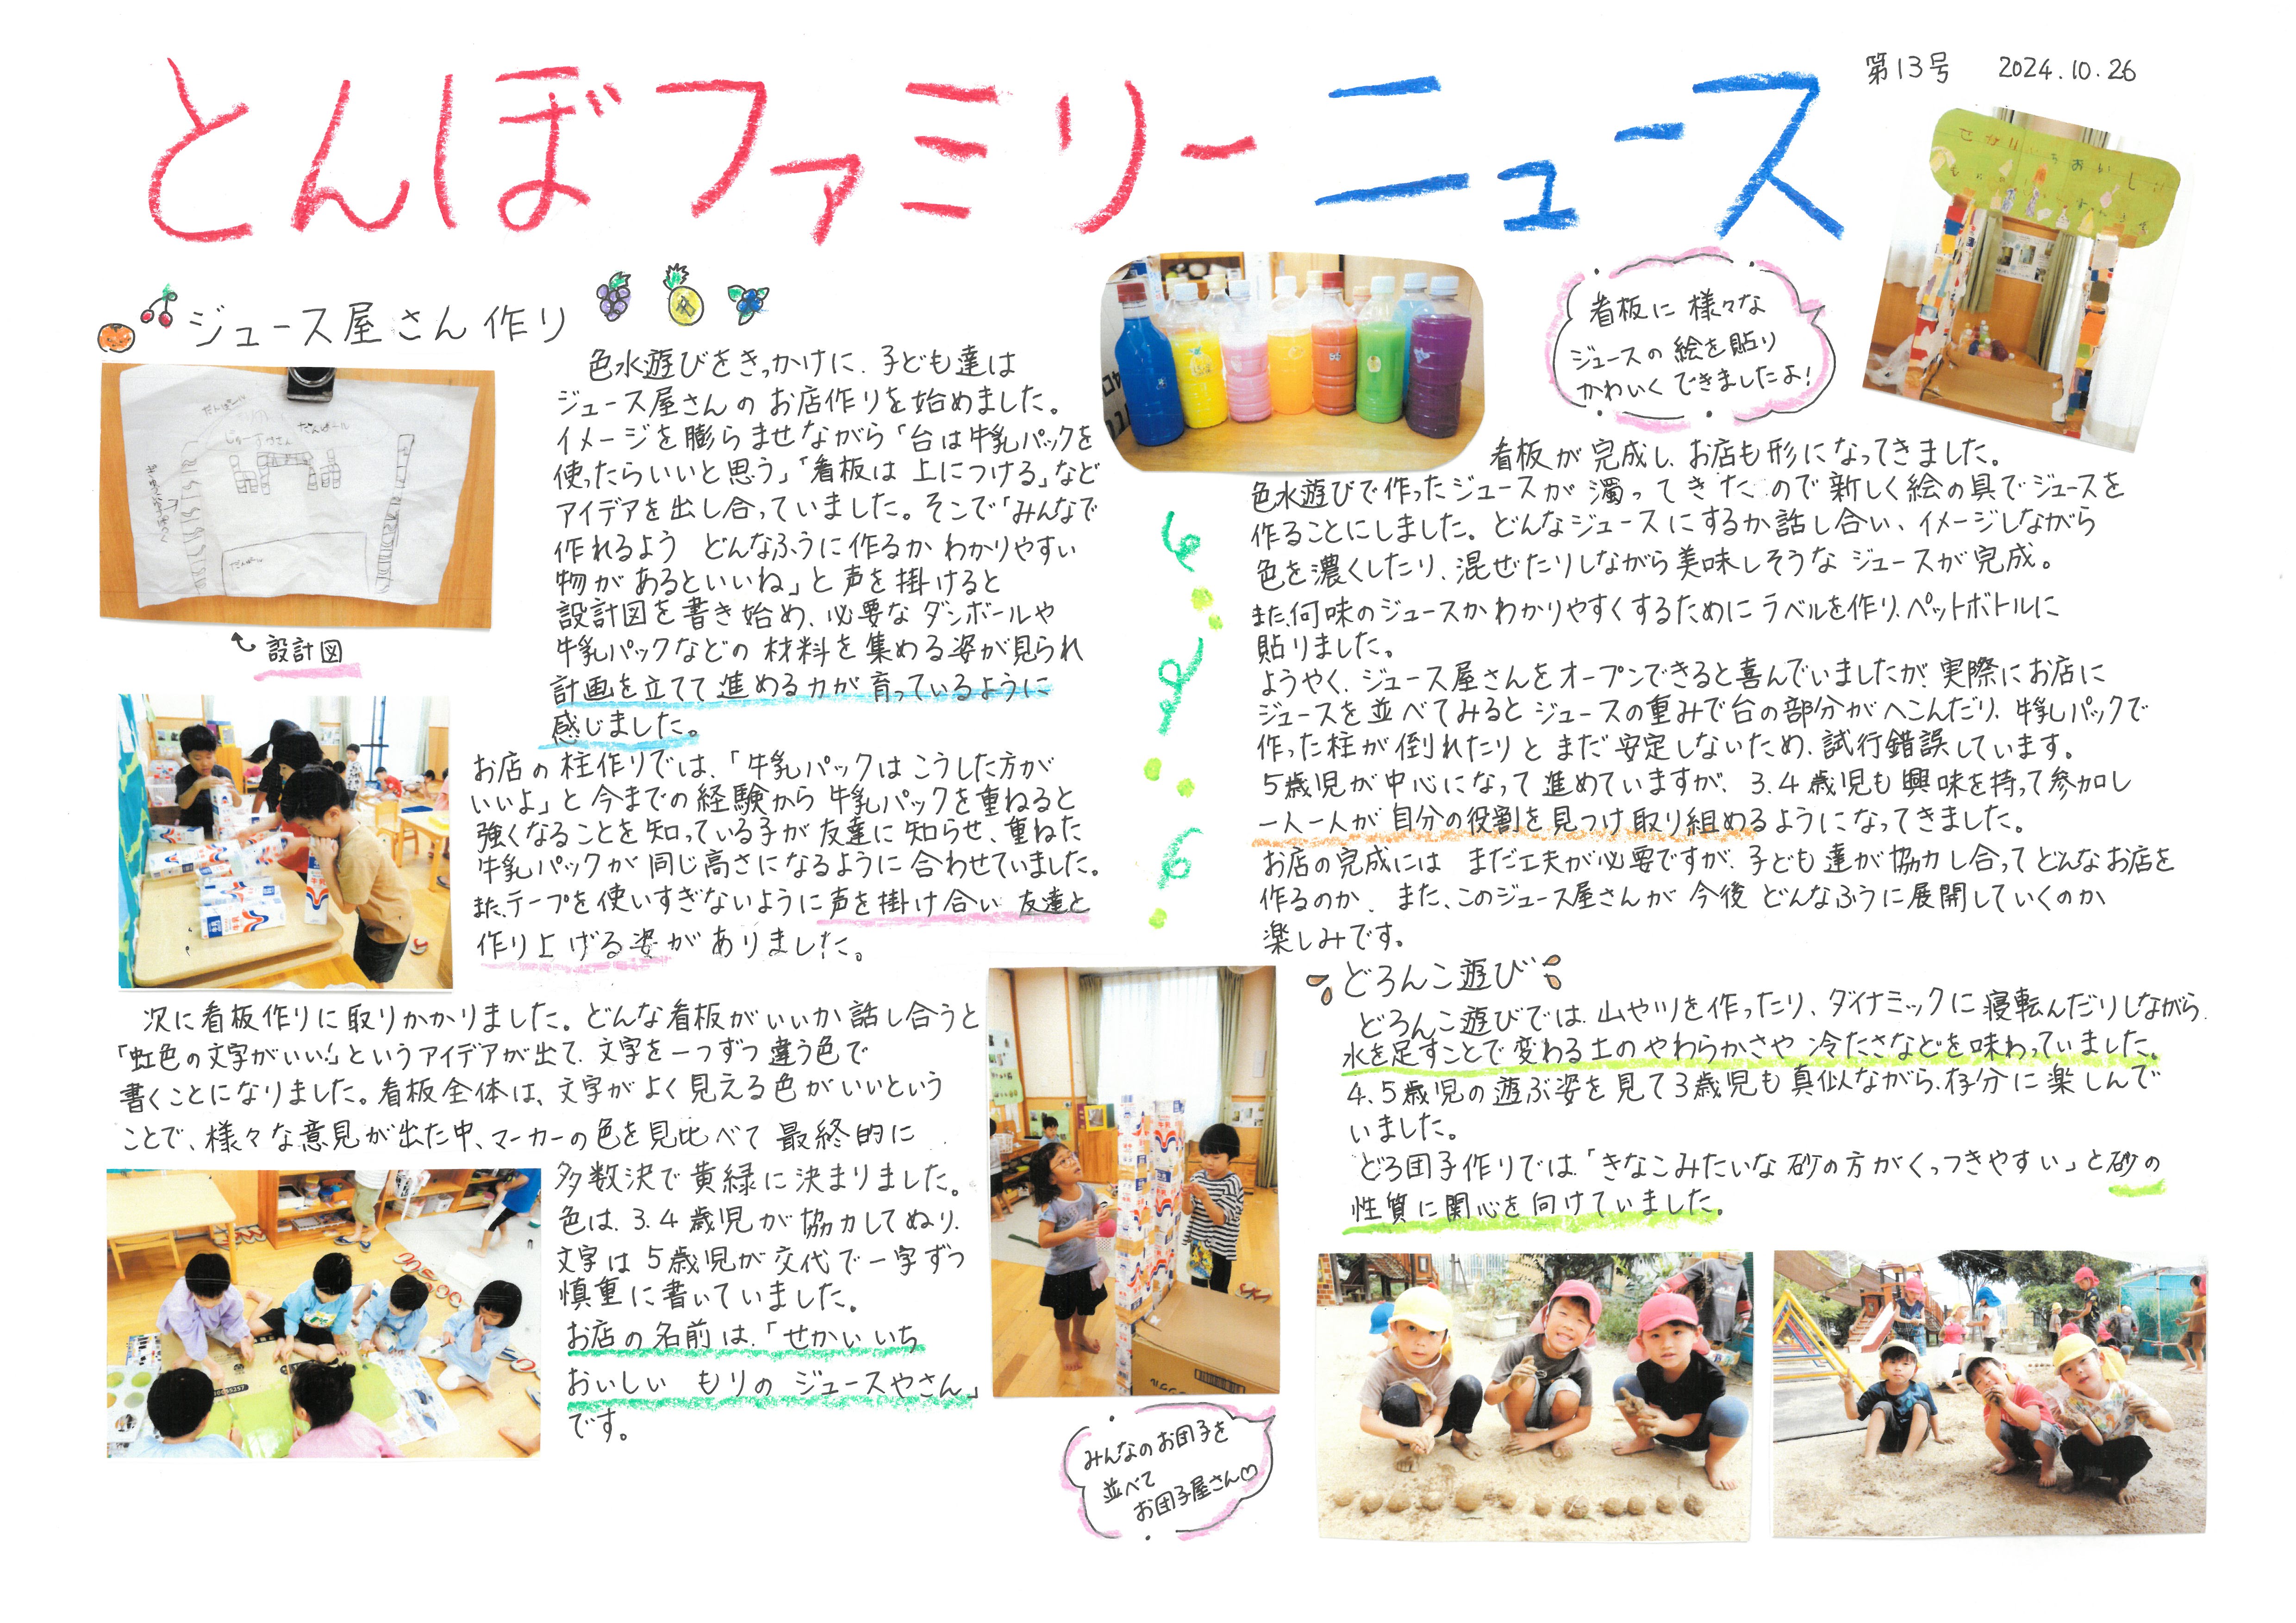 とんぼファミリーニュース
第13号 2024.10.26
ジュース屋さん作り
色水遊びをきっかけに、子ども達は
ジュース屋さんのお店作りを始めました。
イメージを膨らませながら「台は牛乳パックを
使ったらいいと思う」「看板は上につける」など
アイデアを出し合っていました。そこで「みんなで
作れるよう どんなふうに作るかわかりやすい
物があるといいね」と声を掛けると
設計図を書き始め、必要なダンボールや
牛乳パックなどの材料を集める姿が見られ
計画を立てて進める力が育っているように
感じました。
設計図
お店の柱作りでは、「牛乳パックはこうした方が
いいよ」と今までの経験から牛乳パックを重ねると
強くなることを知っている子が友達に知らせ、重ねた
牛乳パックが同じ高さになるように合わせていました。
また、テープを使いすぎないように声を掛け合い 友達と
作り上げる姿がありました。
次に看板作りに取りかかりました。どんな看板がいいか話し合うと
「虹色の文字がいい!」というアイデアが出て、文字を一つずつ違う色で
書くことになりました。看板全体は、文字がよく見える色がいいという
ことで、様々な意見が出た中、マーカーの色を見比べて最終的に
多数決で黄緑に決まりました。
色は、3.4歳児が協力してぬり、
文字は5歳児が交代で一字ずつ
慎重に書いていました。
お店の名前は、「せかいいち
おいしい もりの ジュースやさん」
です。
看板に様々な
ジュースの絵を貼り
かわいくできましたよ!
看板が完成し、お店も形になってきました。
色水遊びで作ったジュースが濁ってきたので新しく絵の具でジュースを
作ることにしました。どんなジュースにするか話し合い、イメージしながら
色を濃くしたり、混ぜたりしながら美味しそうなジュースが完成。
また、何味のジュースかわかりやすくするためにラベルを作り、ペットボトルに
貼りました。
ようやく、ジュース屋さんをオープンできると喜んでいましたが、実際にお店に
ジュースを並べてみるとジュースの重みで台の部分がへこんだり、牛乳パックで
作った柱が倒れたりとまだ安定しないため、試行錯誤しています。
5歳児が中心になって進めていますが、3.4歳児も興味を持って参加し
一人一人が自分の役割を見つけ取り組めるようになってきました。
お店の完成には まだ工夫が必要ですが、子ども達が協力し合ってどんなお店を
作るのか、また、このジュース屋さんが今後どんなふうに展開していくのか
楽しみです。
どろんこ遊び
どろんこ遊びでは、山や川を作ったり、ダイナミックに寝転んだりしながら、
水を足すことで変わる土のやわらかさや冷たさなどを味わっていました。
4.5歳児の遊ぶ姿を見て3歳児も真似ながら、存分に楽しんで
いました。
どろ団子作りでは、「きなこみたいな砂の方がくっつきやすい」と砂の
性質に関心を向けていました。
みんなのお団子を
並べて
お団子屋さん♡